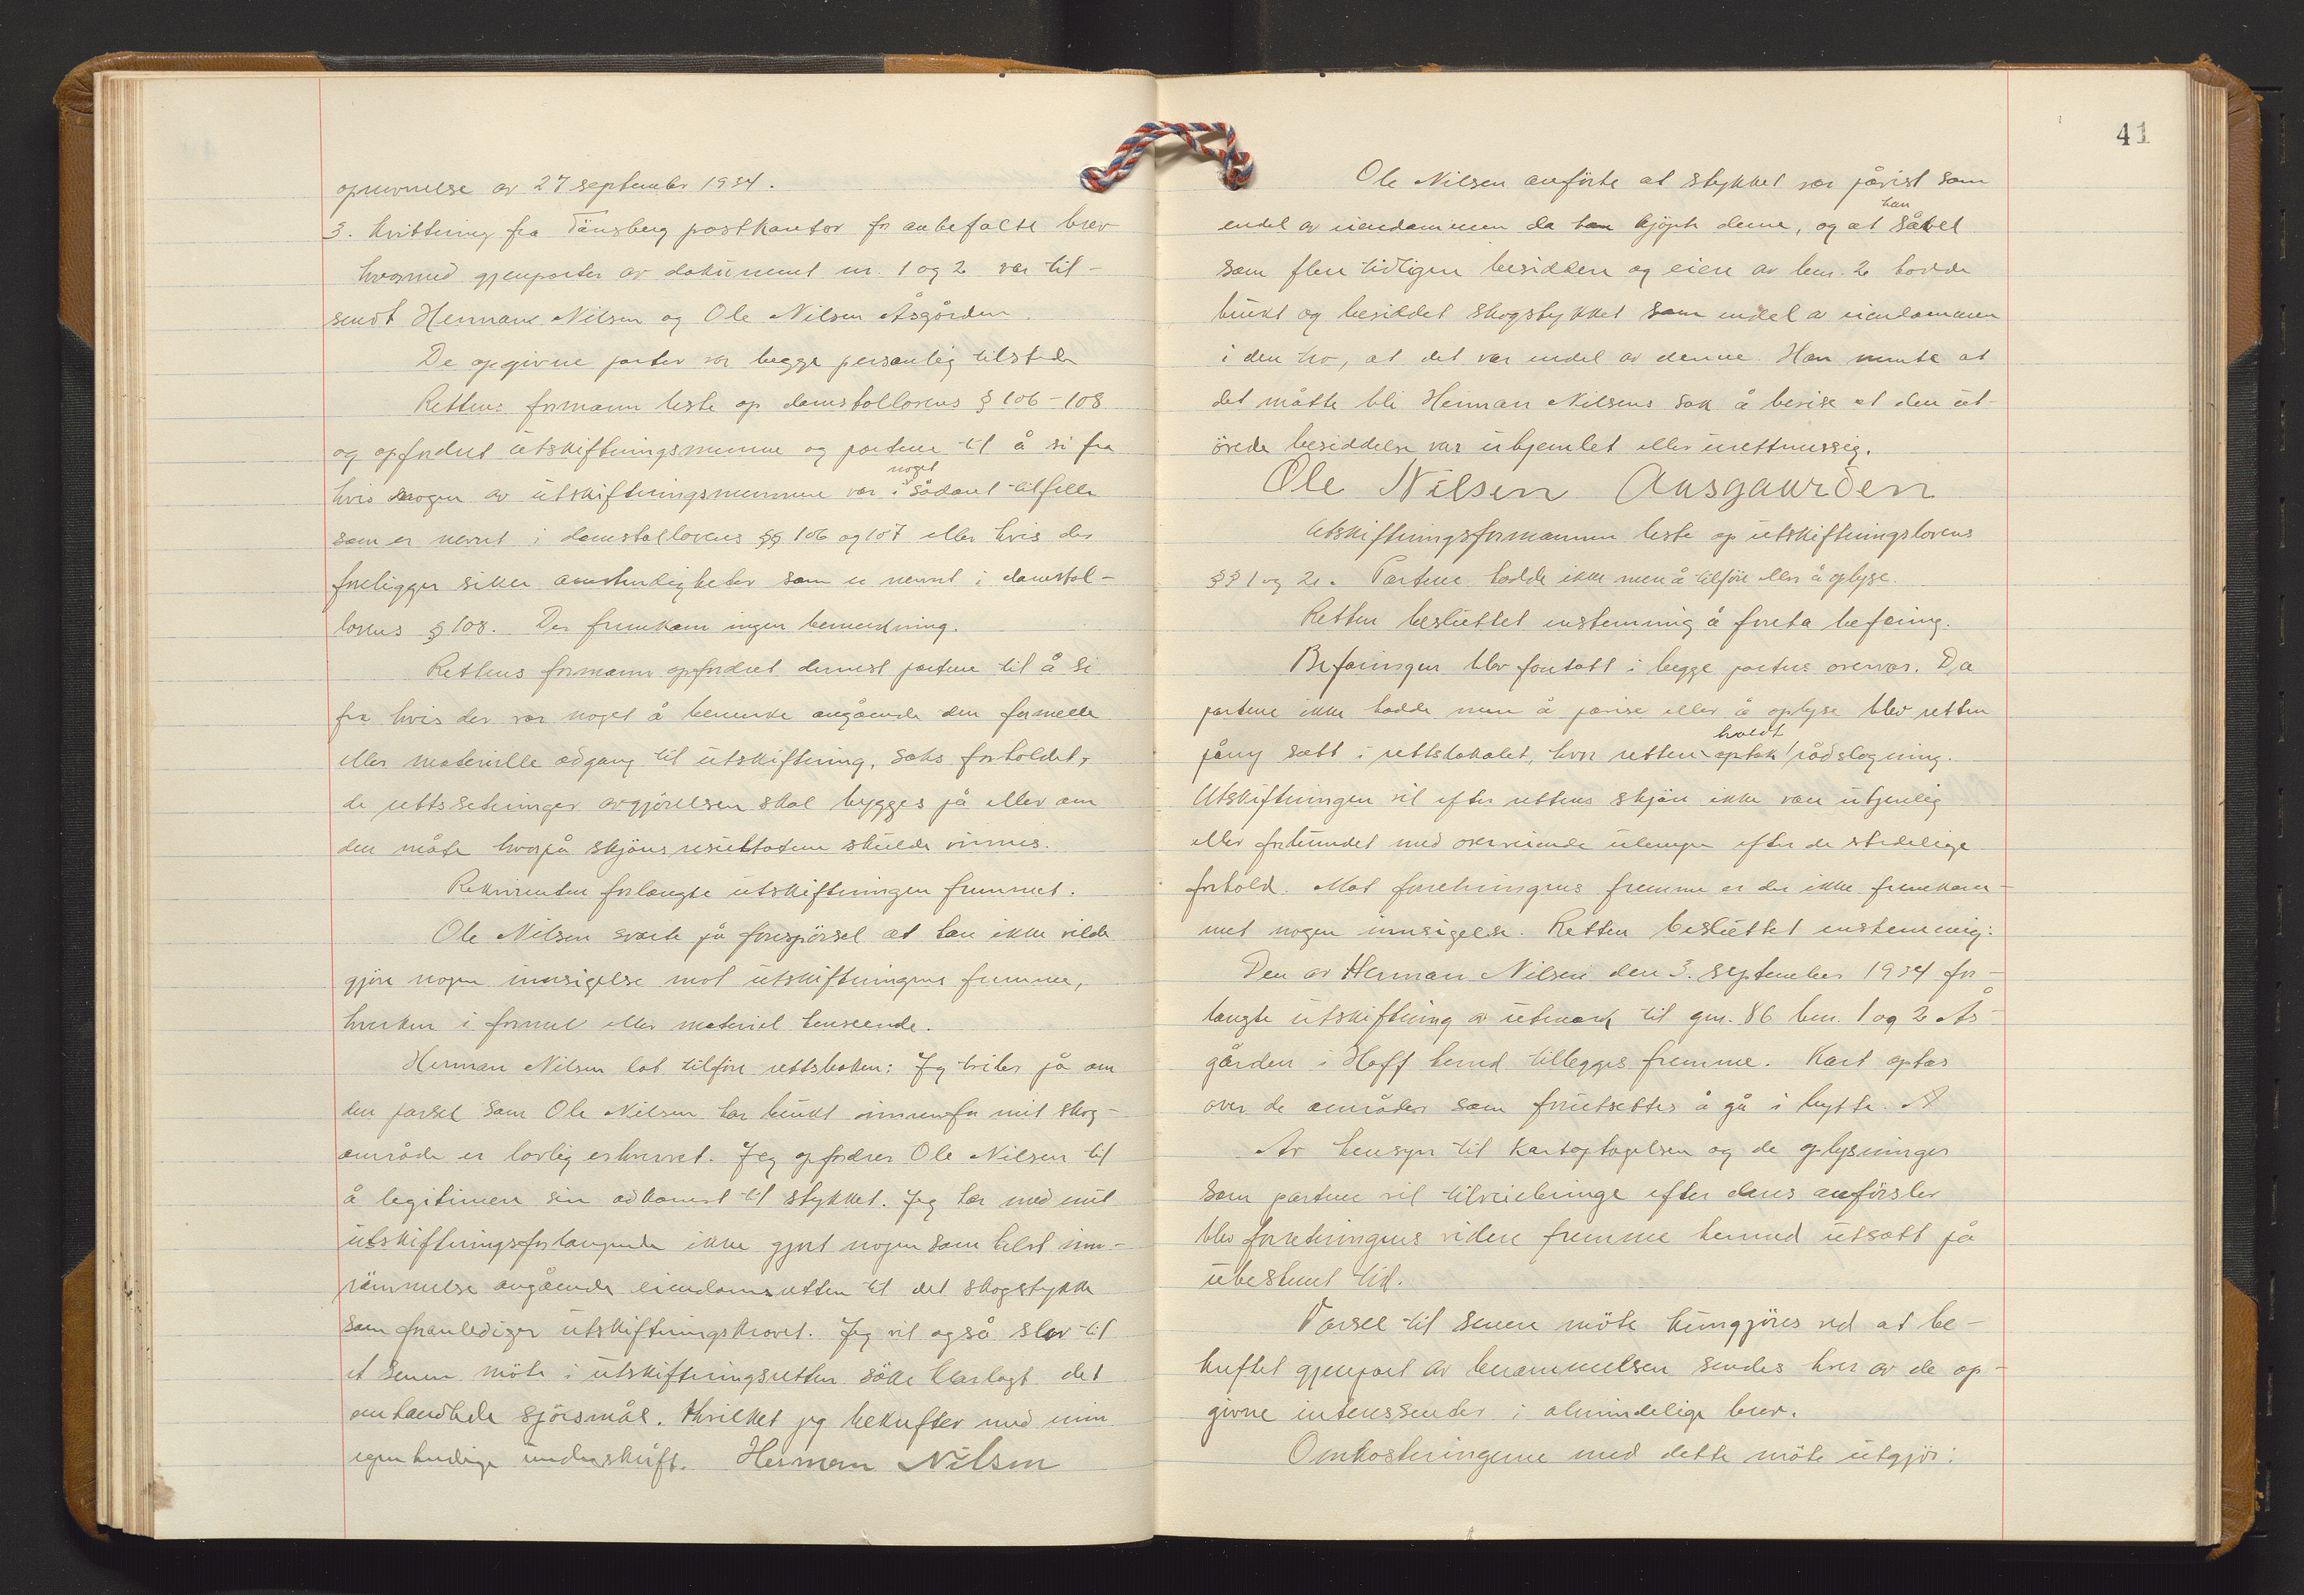 opnevnelse av 27 september 1934.
3. Kvittering fra Tönsberg postkontor for anbefalte brev
hvormed gjenparter av dokument nr. 1 og 2 var til-
sendt Hermann Nilsen og Ole Nilsen Åsgården.
De opgivne parter var begge personlig tilstede
Rettens formann leste op domstollovens § 106-108
og opfordret utskiftningsmennene og partene til å si fra
noget
hvis nogen av utskiftningsmennene var i sådant tilfelle
som er nevnt i domstollovens §§ 106 og 107 eller hvis der
foreligger slike omstendigheter som er nevnt i domstol-
lovens § 108. Der fremkom ingen bemerkning.
Rettens formann opfordret dernest partene til å si
fra hvis der var noget å bemerke angående den formelle
eller materielle adgang til utskiftning, saksforholdet,
de rettssetninger avgjörelsen skal bygges på eller om
den måte hvorpå skjönsresultatene skulde vinnes.
Rekvirenten forlangte utskiftningen fremmet.
Ole Nilsen svarte på forespörsel at han ikke vilde
gjöre nogen innsigelse mot utskiftningens fremme,
hverken i formel eller materiel henseende.
Herman Nilsen lot tilföre rettsboken: Jeg tviler på om
den parsel som Ole Nilsen har brukt innenfor mit skog-
område er lovlig erhvervet. Jeg opfordrer Ole Nilsen til
å legitimere sin adkomst til stykket. Jeg har med mit
utskiftningsforlangende ikke gjort nogen som helst inn-
römmelse angående eiendomsretten til det skogstykke
som foranlediger utskiftningskravet. Jeg vil også
et senere möte i utskiftningsretten söke klarlagt det
omhandlede spörsmål. Hvilket jeg bekrefter med min
egenhendige underskrift. Herman Nilsen
41
Ole Nilsen anförte at stykket var påvist som
han
endel av eiendommen da han kjöpte denne, og at såvel
som flere tidligere besiddere og eiere av bnr. 2 hadde
brukt og besiddet skogstykket som endel av eiendommen
i den tro, at det var endel av denne. Han mente at
det måtte bli Herman Nilsens sak å bevise at den ut-
övede besiddelse var uhjemlet eller urettmessig.
Ole Nilsen Aasgaarden
Utskiftningsformannen leste op utskiftningslovens
§§ 1 og 2. Partene hadde ikke mer å tilföre eller å oplyse.
Retten besluttet enstemmig å foreta befaring.
Befaringen blev foretatt i begge parters overvær. Da
partene ikke hadde mere å påvise eller å oplyse blev retten
holdt
påny satt i rettslokalet, hvor retten optok rådslagning.
Utskiftningen vil efter rettens skjön ikke være utjenlig
eller forbundet med overveiende ulemper efter de stedelige
forhold. Mot forretningens fremme er der ikke fremkom-
met nogen innsigelse. Retten besluttet enstemmig:
Den av Herman Nilsen den 3. september 1934 for-
langte utskiftning av utmark til gnr. 86 bnr. 1 og 2 Ås-
gården i Hoff herred tillegges fremme. Kart optas
over de områder som forutsettes å gå i bytte. A
Av hensyn til kartoptagelsen og de oplysninger
som partene vil tilveiebringe efter deres anförsler
blev forretningens videre fremme hermed utsatt på
ubestemt tid.
Varsel til senere möte kungjöres ved at be-
kreftet gjenpart av berammelsen sendes hver av de op-
givne interessenter i almindelige brev.
Omkostningene med dette möte utgjör: